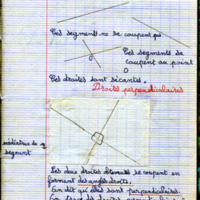 Ces segments ne se coupent pas
Ces segments se
coupent au point
O
Ces droites sont sécantes.
Droites perpendiculaires
médiatrice du
segment
Les deux droites se coupent en
formant des angles droits.
On dit qu'elles sont perpendiculaires.